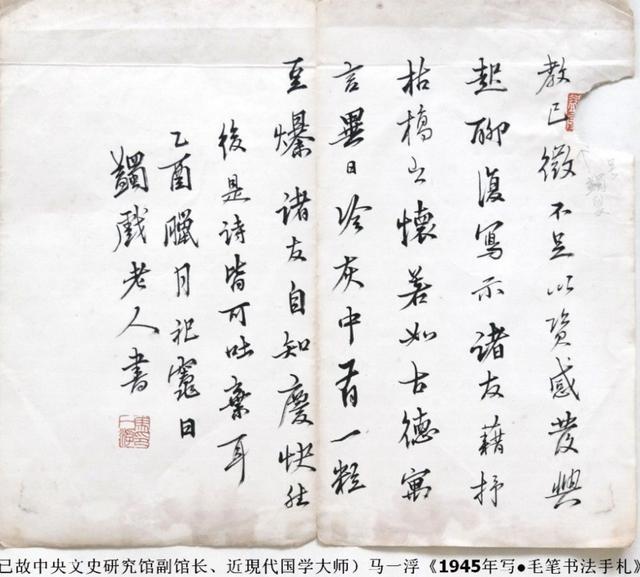 教已微不足以資感發興
起聊復寫示諸友藉抒
枯槁之懷若如古德寓
言異日冷灰中有一粒
豆爆諸友自知慶快然
後是詩皆可吐棄耳
乙酉臘月祀竈日
蠲戲老人書
已故中央文史研究馆副馆长、近現代国学大师）马一浮《1945年写●毛笔书法手札》